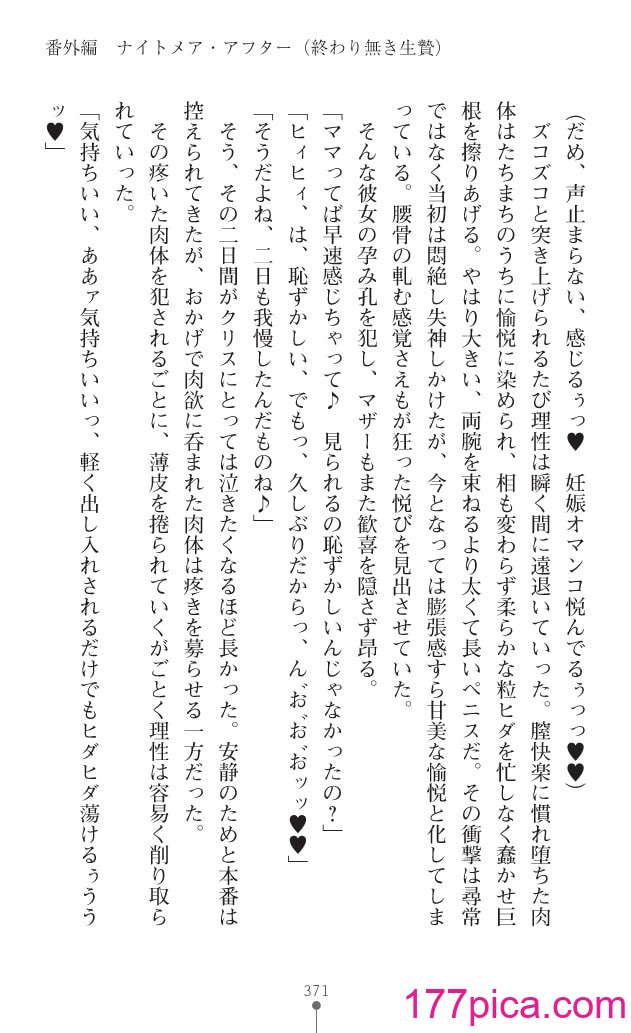 番外編　ナイトメア・アフター（終わり無き生贄）
（だめ、声止まらない、感じるぅっ♥　妊娠オマンコ悦んでるぅっっ♥♥）
　ズコズコと突き上げられるたび理性は瞬く間に遠退いていった。膣快楽に慣れ堕ちた肉
体はたちまちのうちに愉悦に染められ、相も変わらず柔らかな粒ヒダを忙しなく蠢かせ巨
根を擦りあげる。やはり大きい、両腕を束ねるより太くて長いペニスだ。その衝撃は尋常
ではなく当初は悶絶し失神しかけたが、今となっては膨張感すら甘美な愉悦と化してしま
っている。腰骨の軋む感覚さえもが狂った悦びを見出させていた。
　そんな彼女の孕み孔を犯し、マザーもまた歓喜を隠さず昂る。
「ママってば早速感じちゃって♪　見られるの恥ずかしいんじゃなかったの？」
「ヒィヒィ、は、恥ずかしい、でもっ、久しぶりだからっ、んお゛お゛お゛ッッ♥♥」
「そうだよね、二日も我慢したんだものね♪」
　そう、その二日間がクリスにとっては泣きたくなるほど長かった。安静のためと本番は
控えられてきたが、おかげで肉欲に呑まれた肉体は疼きを募らせる一方だった。
　その疼いた肉体を犯されるごとに、薄皮を捲られていくがごとく理性は容易く削り取ら
れていった。
「気持ちいい、ああァ気持ちいいっ、軽く出し入れされるだけでもヒダヒダ蕩けるぅうう
ッ♥」
371
177pica.com